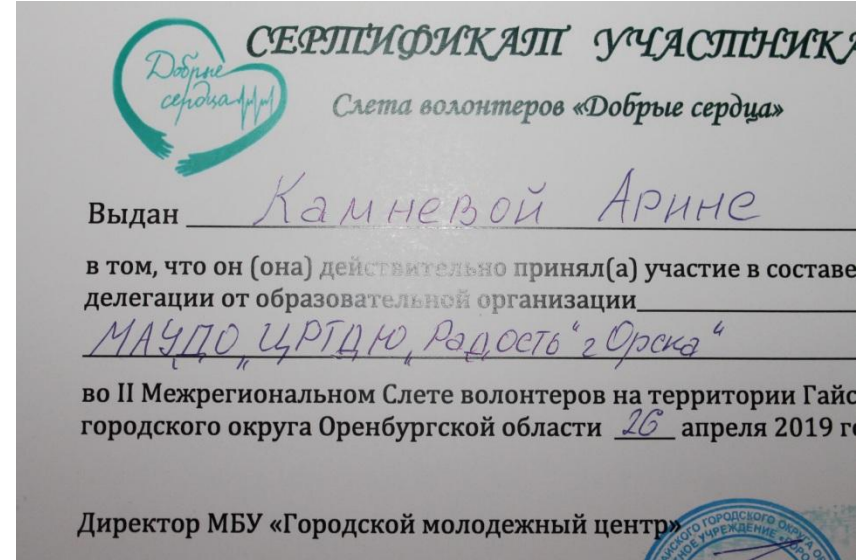 Добрые
сердца
СЕРТИФИКАТ УЧАСТНИКА
Слета волонтеров «Добрые сердца»
Выдан Камневой Арине
в том, что он (она) действительно принял(а) участие в составе
делегации от образовательной организации
МАУДО „ЦРТДЮ „Радость" г Орска"
во II Межрегиональном Слете волонтеров на территории Гайс
городского округа Оренбургской области 26 апреля 2019 г
Директор МБУ «Городской молодежный центр»
ГОРОДСКОГО ОКРУГА
УЧРЕЖДЕНИЕ